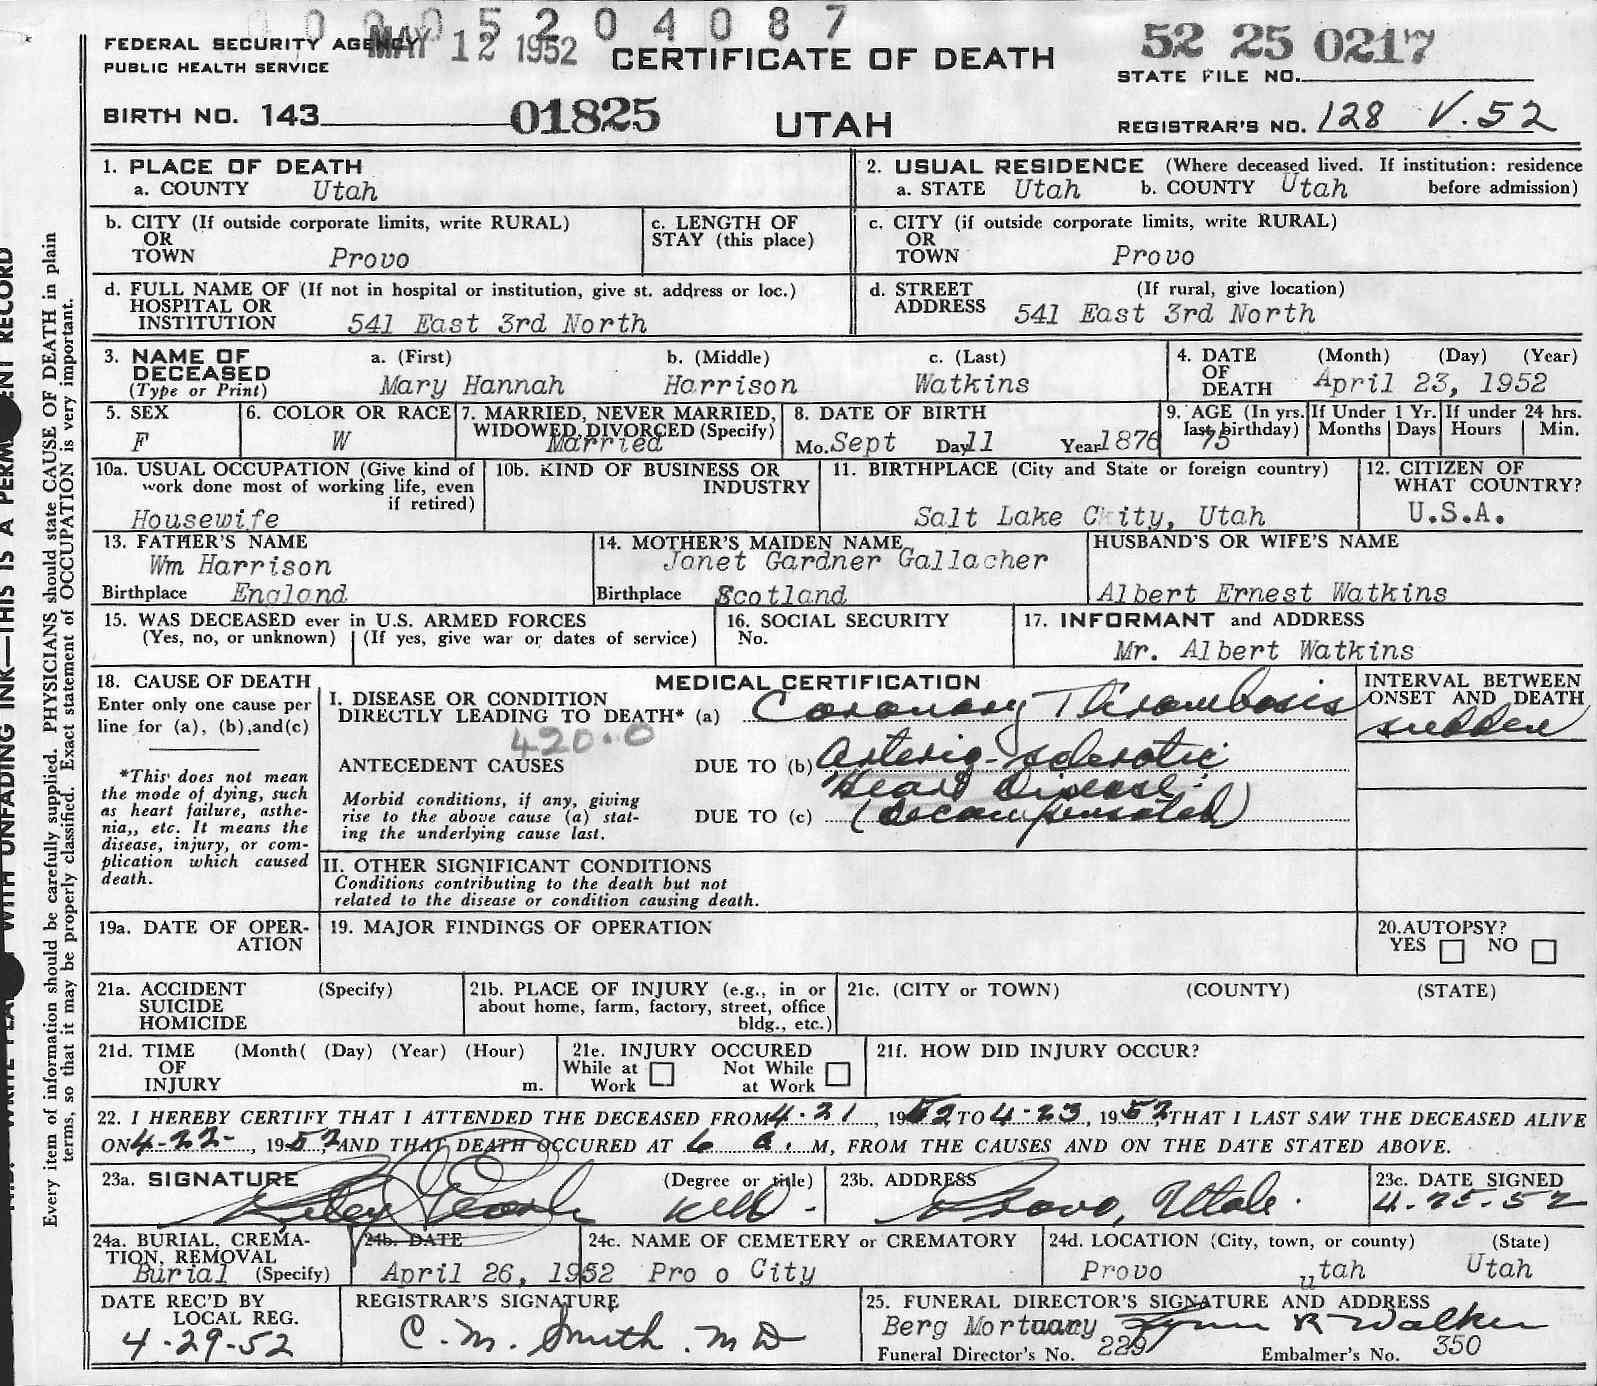 0 0 0 5 2 0 4 0 8 7
FEDERAL SECURITY AGENCY
PUBLIC HEALTH SERVICE
MAY 12 1952
CERTIFICATE OF DEATH
52 25 0217
STATE FILE NO.
BIRTH NO. 143 01825
UTAH
REGISTRAR'S NO. 128 V.52
1. PLACE OF DEATH
a. COUNTY Utah
2. USUAL RESIDENCE (Where deceased lived. If institution: residence
a. STATE Utah b. COUNTY Utah before admission)
b. CITY (If outside corporate limits, write RURAL)
OR
TOWN Provo
c. LENGTH OF
STAY (this place)
c. CITY (if outside corporate limits, write RURAL)
OR
TOWN Provo
d. FULL NAME OF (If not in hospital or institution, give st. address or loc.)
HOSPITAL OR
INSTITUTION 541 East 3rd North
d. STREET (If rural, give location)
ADDRESS 541 East 3rd North
3. NAME OF a. (First) b. (Middle) c. (Last)
DECEASED
(Type or Print) Mary Hannah Harrison Watkins
4. DATE (Month) (Day) (Year)
OF
DEATH April 23, 1952
5. SEX
F
6. COLOR OR RACE
W
7. MARRIED, NEVER MARRIED,
WIDOWED, DIVORCED (Specify)
Married
8. DATE OF BIRTH
Mo. Sept Day 11 Year 1876
9. AGE (In yrs.
last birthday) 75
If Under 1 Yr.
Months Days
If under 24 hrs.
Hours Min.
10a. USUAL OCCUPATION (Give kind of
work done most of working life, even
if retired)
Housewife
10b. KIND OF BUSINESS OR
INDUSTRY
11. BIRTHPLACE (City and State or foreign country)
Salt Lake C ity, Utah
12. CITIZEN OF
WHAT COUNTRY?
U.S.A.
13. FATHER'S NAME
Wm Harrison
Birthplace England
14. MOTHER'S MAIDEN NAME
Janet Gardner Gallacher
Birthplace Scotland
HUSBAND'S OR WIFE'S NAME
Albert Ernest Watkins
15. WAS DECEASED ever in U.S. ARMED FORCES
(Yes, no, or unknown) (If yes, give war or dates of service)
16. SOCIAL SECURITY
No.
17. INFORMANT and ADDRESS
Mr. Albert Watkins
18. CAUSE OF DEATH
Enter only one cause per
line for (a), (b), and (c)
*This does not mean
the mode of dying, such
as heart failure, asthe-
nia,, etc. It means the
disease, injury, or com-
plication which caused
death.
MEDICAL CERTIFICATION
I. DISEASE OR CONDITION
DIRECTLY LEADING TO DEATH* (a) Coronary Thrombosis
420.0
ANTECEDENT CAUSES DUE TO (b) Arterio-sclerotic
Heart Disease.
Morbid conditions, if any, giving
rise to the above cause (a) stat-
ing the underlying cause last.
DUE TO (c) (Decompensated)
INTERVAL BETWEEN
ONSET AND DEATH
sudden
II. OTHER SIGNIFICANT CONDITIONS
Conditions contributing to the death but not
related to the disease or condition causing death.
19a. DATE OF OPER-
ATION
19. MAJOR FINDINGS OF OPERATION
20. AUTOPSY?
YES NO
21a. ACCIDENT (Specify)
SUICIDE
HOMICIDE
21b. PLACE OF INJURY (e.g., in or
about home, farm, factory, street, office
bldg., etc.)
21c. (CITY or TOWN) (COUNTY) (STATE)
21d. TIME (Month( (Day) (Year) (Hour)
OF
INJURY m.
21e. INJURY OCCURED
While at Not While
Work at Work
21f. HOW DID INJURY OCCUR?
22. I HEREBY CERTIFY THAT I ATTENDED THE DECEASED FROM 4-21, 1952 TO 4-23, 1952, THAT I LAST SAW THE DECEASED ALIVE
ON 4-22-, 1952, AND THAT DEATH OCCURED AT 6 a. M, FROM THE CAUSES AND ON THE DATE STATED ABOVE.
23a. SIGNATURE (Degree or title)
23b. ADDRESS
Provo, Utah.
23c. DATE SIGNED
4-25-52
24a. BURIAL, CREMA-
TION, REMOVAL
Burial (Specify)
24b. DATE
April 26, 1952
24c. NAME OF CEMETERY or CREMATORY
Pro o City
24d. LOCATION (City, town, or county) (State)
Provo utah Utah
DATE REC'D BY
LOCAL REG.
4-29-52
REGISTRAR'S SIGNATURE
C. M. Smith. MD
25. FUNERAL DIRECTOR'S SIGNATURE AND ADDRESS
Berg Mortuary Lynn R Walker
Funeral Director's No. 229 Embalmer's No. 350
Every item of information should be carefully supplied. PHYSICIANS should state CAUSE OF DEATH in plain
terms, so that it may be properly classified. Exact statement of OCCUPATION is very important.
WITH UNFADING INK—THIS IS A PERM ENT RECORD